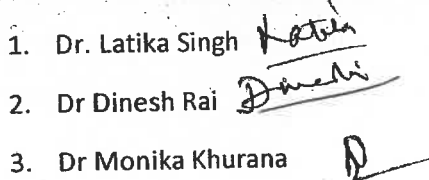 1. Dr. Latika Singh Latika
2. Dr Dinesh Rai Dinesh
3. Dr Monika Khurana